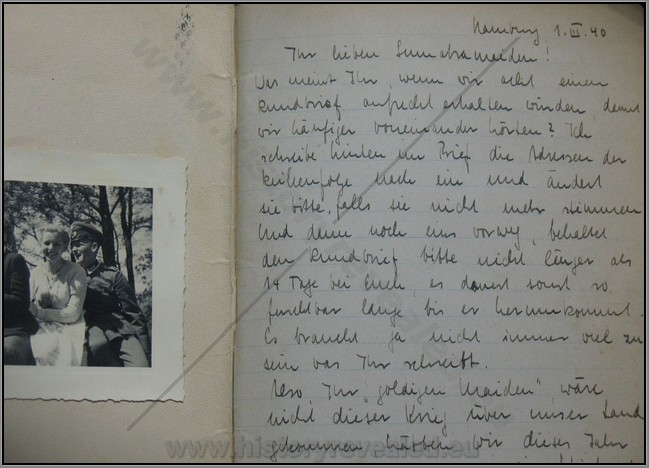 Hamburg 1. III. 40
Ihr lieben Sumatramaiden!
Was meint Ihr, wenn wir acht einen
Rundbrief aufrecht erhalten würden damit
wir häufiger voneinander hörten? Ich
schreibe hinten im Brief die Adressen der
Reihenfolge nach ein und ändert
sie bitte, falls sie nicht mehr stimmen
Und dann noch eins vorweg, behaltet
den Rundbrief bitte nicht länger als
14 Tage bei Euch, es dauert sonst so
furchtbar lange bis er herumkommt.
Es braucht ja nicht immer viel zu
sein was Ihr schreibt.
Also, Ihr "goldigen Maiden", wäre
nicht dieser Krieg über unser Land
gekommen hätten wir dieses Jahr
www.historyrevealed.eu